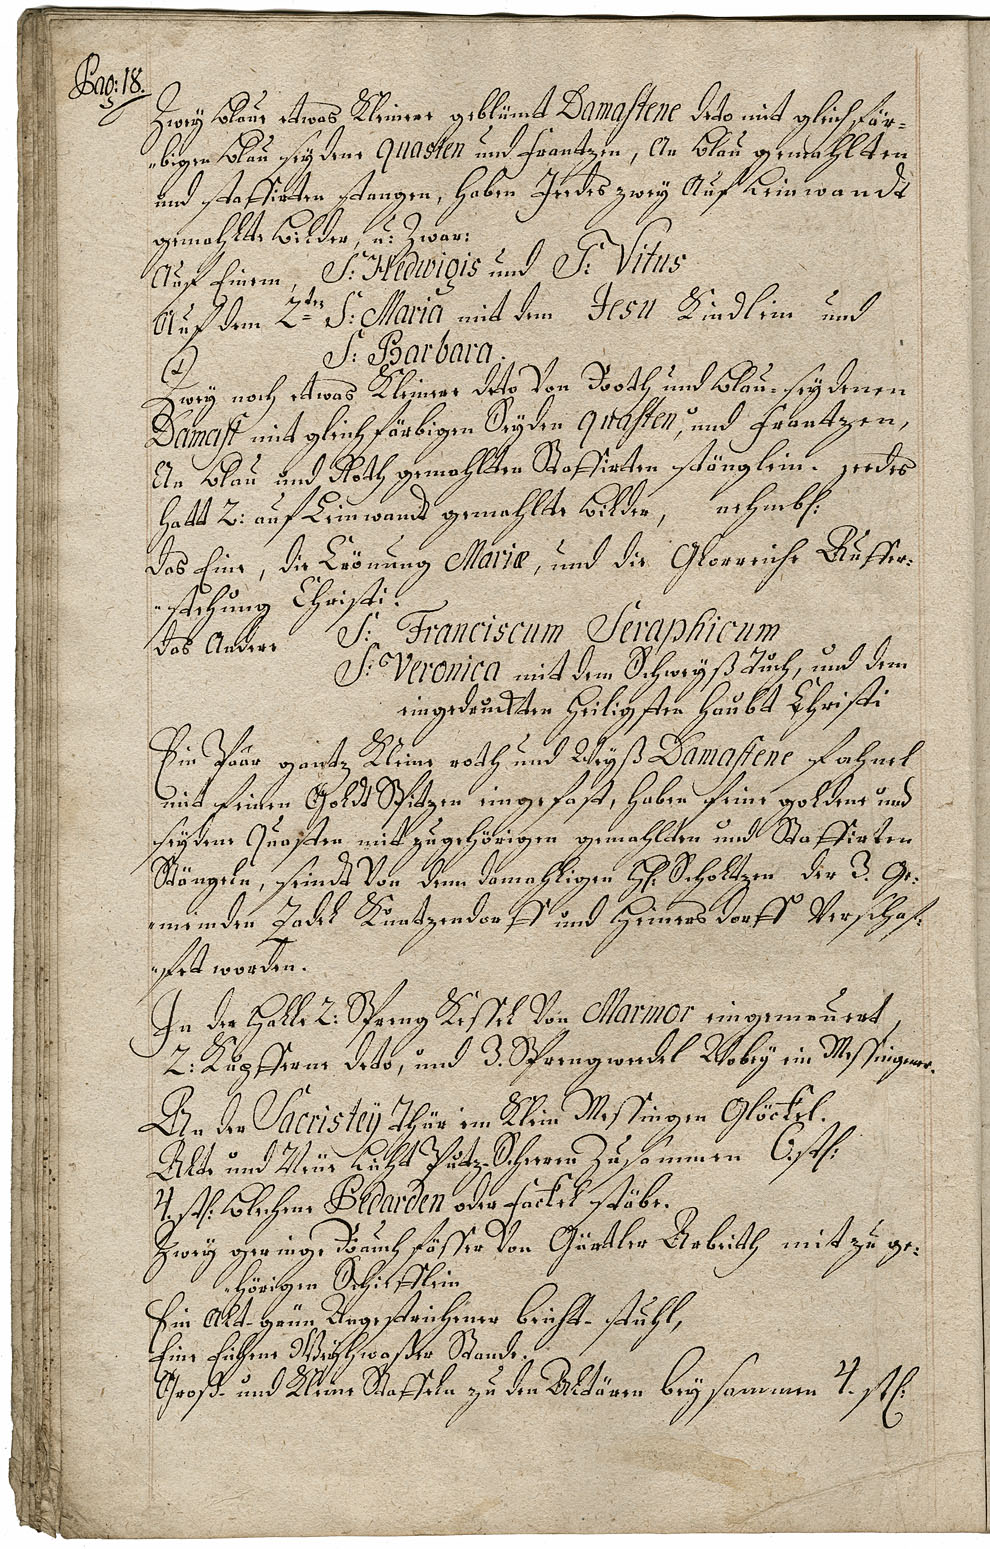 Pag: 18.
Zwey blaue etwas kleinere geblümt Damastene deto mit gleich fär=
=bigen blau seydene quasten und Frantzen, An blau gemahlten
und staffirten stangen, haben Jedes zwey Auf Leinwandt
gemahlte bilder, u: Zwar:
Auf Einem, S: Hedwigis und S: Vitus
Auf dem 2ten S: Maria mit dem Jesu Kindlein und
S: Barbara.
Zwey noch etwas kleinere deto Von Roth und blau-seydenen
Damast mit gleich färbigen Seyden quasten, und Frantzen,
An blau und Roth gemahlten Staffirten stänglein. jedes
hatt 2: auf Leinwandt gemahlte bilder, nehmbl:
das Eine, die Crönung Mariæ, und die Glorreiche Auffer=
=stehung Christi.
das Andere S: Franciscum Seraphicum
S: Veronica mit dem Schweyß Tuch, und dem
eingedruckten heiligsten haubt Christi
Ein Paar gantz kleine roth und Weyß Damastene Fahnel
mit feinen Goldt Spitzen eingefast, haben feine goldene und
seydene Quasten mit zugehörigen gemahlten und Staffirten
Stängeln, seindt Von denen damahligen H: Scholtzen der 3. Ge=
=meinden Zadel Kuntzendorff und Heinersdorff Verschaf=
=fet worden.
In der Halle 2: Spreng Kessel Von Marmor eingemauert,
2: Kupfferne deto, und 3. Sprengwedel Wobey ein Messingener.
An der Sacristey Thür ein klein Messingen Glöckel.
Alte und Neue Licht Putz-Scheeren Zusammen 6. stk:
4. stk: blechene Bedarden oder fackel stäbe.
Zwey geringe Rauch fässer Von Gürtler Arbeith mit zu ge=
=hörigen Schifflein
Ein Alt-grün Angestrichener beicht-stuhl,
Eine Eichene Weyhwasser Stande.
Groß- und kleine Staffeln zu den Altären beysammen 4. stk: